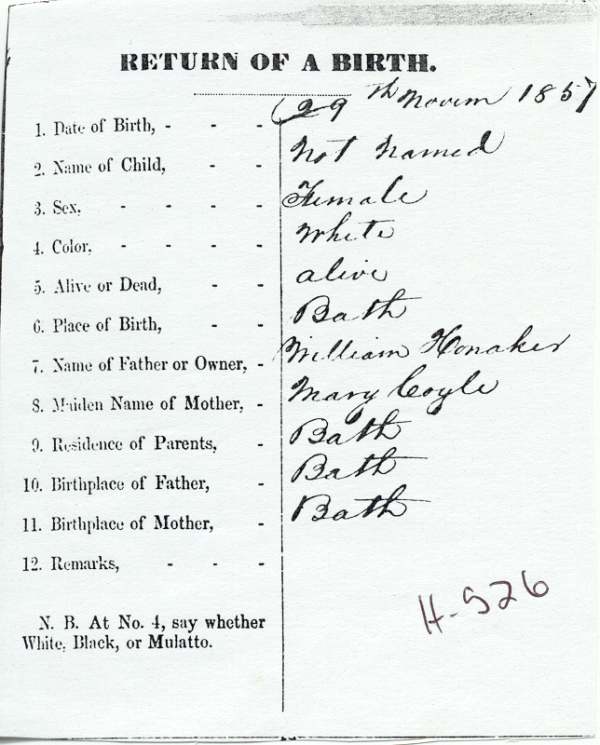 RETURN OF A BIRTH.
1. Date of Birth, - - - 29th Novem 1857
2. Name of Child, - - Not Named
3. Sex, - - - - Female
4. Color, - - - - White
5. Alive or Dead, - - alive
6. Place of Birth, - - Bath
7. Name of Father or Owner, - William Honaker
8. Maiden Name of Mother, - Mary Coyle
9. Residence of Parents, - Bath
10. Birthplace of Father, - Bath
11. Birthplace of Mother, - Bath
12. Remarks, - - -
N. B. At No. 4, say whether
White, Black, or Mulatto.
H-526